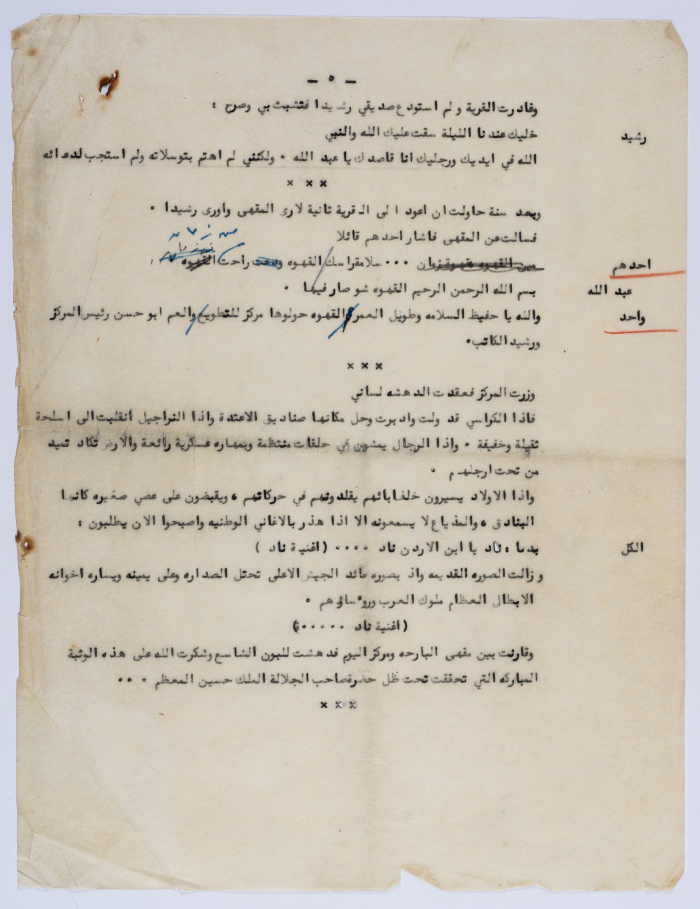 - ٥ -
وغادرت القرية ولم استودع صديقي رشيدا فتشبث بي وصرح :
رشيد خليك عندنا الليلة سقت عليك الله والنبي
الله في ايديك ورجليك انا قاصدك يا عبد الله ٠ ولكنني لم اهتم بتوسلاته ولم استجب لدعائه
× × ×
وبعد سنة حاولت ان اعود الى القرية ثانية لارى المقهى واورى رشيدا ٠
فسالت عن المقهى فاشار احدهم قائلا
احدهم ٠٠٠ سلامة راسك القهوه راحت :
عبد الله بسم الله الرحمن الرحيم القهوه شو صار فيها ٠
واحد والله يا حفيظ السلامه وطويل العمر القهوه حولوها مركز للتطويع والعم ابو حسن رئيس المركز
ورشيد الكاتب٠
× × ×
وزرت المركز فعقدت الدهشه لساني
فاذا الكراسي قد ولت وادبرت وحل مكانها صناديق الاعتدة واذا النراجيل انقلبت الى اسلحة
ثقيلة وخفيفة ٠ واذا الرجال يمشون في حلقات منتظمة وبمهاره عسكرية رائعة والارض تكاد تميد
من تحت ارجلهم ٠
واذا الاولاد يسيرون خلف ابائهم يقلدونهم في حركاتهم ، ويقبضون على عصي صغيره كانها
البنادق ، والمذياع لا يسمعونه الا اذا هدر بالاغاني الوطنيه واصبحوا الان يطلبون :
الكل بدنا : ناد يا ابن الاردن ناد ٠٠٠٠ ( اغنية ناد )
وزالت الصوره القديمه واذ بصوره قائد الجيش الاعلى تحتل الصداره وعلى يمينه ويساره اخوانه
الابطال العظام ملوك العرب وروءساوءهم ٠
( اغنية ناد ٠٠٠٠٠ )
وقارنت بين مقهى البارحه ومركز اليوم فدهشت للبون الشاسع وشكرت الله على هذه الوثبة
المباركه التي تحققت تحت ظل حضرة صاحب الجلالة الملك حسين المعظم ٠٠٠
× × ×